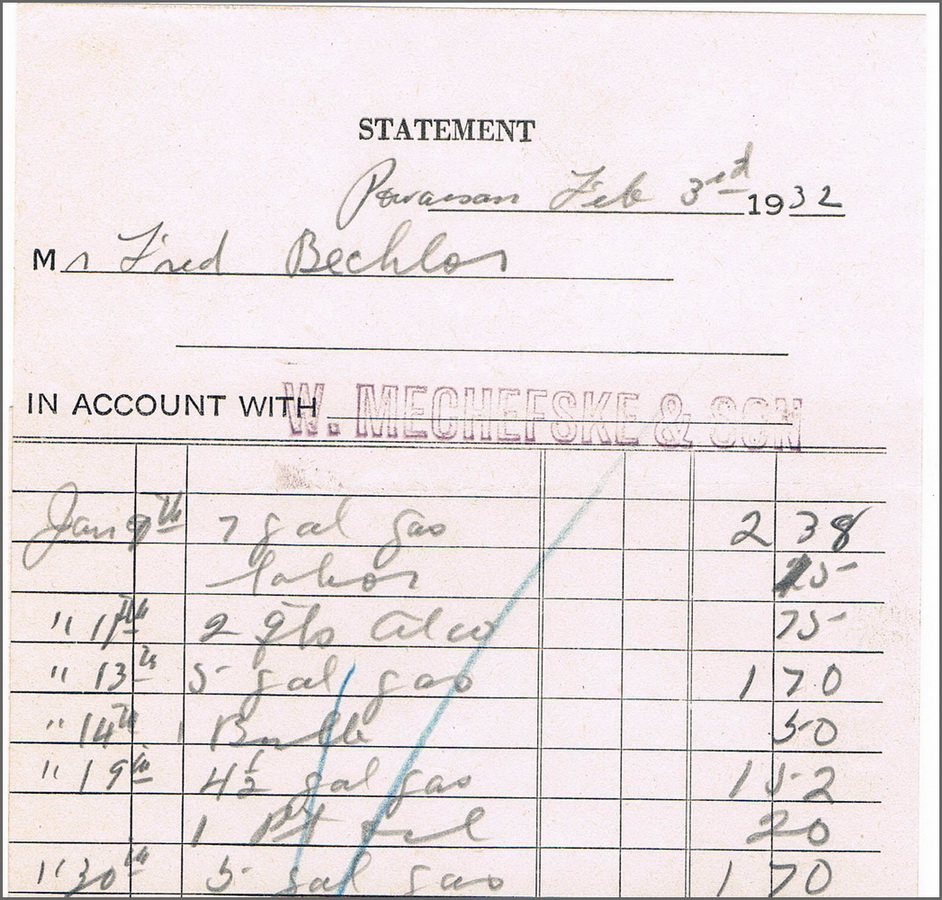 STATEMENT
Powassan Feb 3rd 1932
Mr Fred Bechlor
IN ACCOUNT WITH W. MECHEFSKE & SON
Jan 9th 7 gal gas 2 38
labor 25
" 11th 2 qts Alco 75
" 13th 5 gal gas 1 70
" 14th 1 Bulb 50
" 19th 4½ gal gas 1 52
1 Pt oil 20
" 30th 5 gal gas 1 70